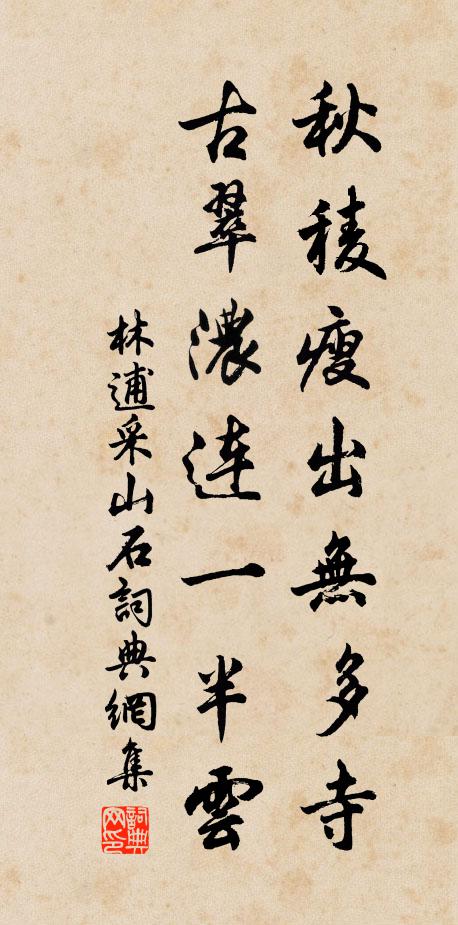 秋稜瘦出無多寺
古翠濃連一半雲
林逋采山石詞典網集
詞典網印